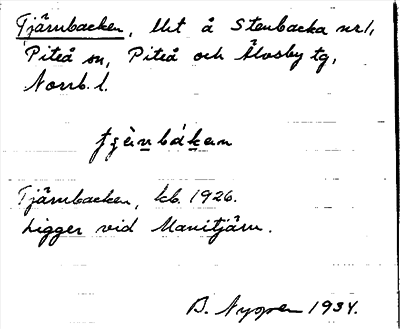 Tjärnbacken, lht å Stenbacka nr 1,
Piteå sn, Piteå och Älvsby tg,
Norrb. l.
Tjärnbacken, kb. 1926.
Ligger vid Manitjärn.
1934.